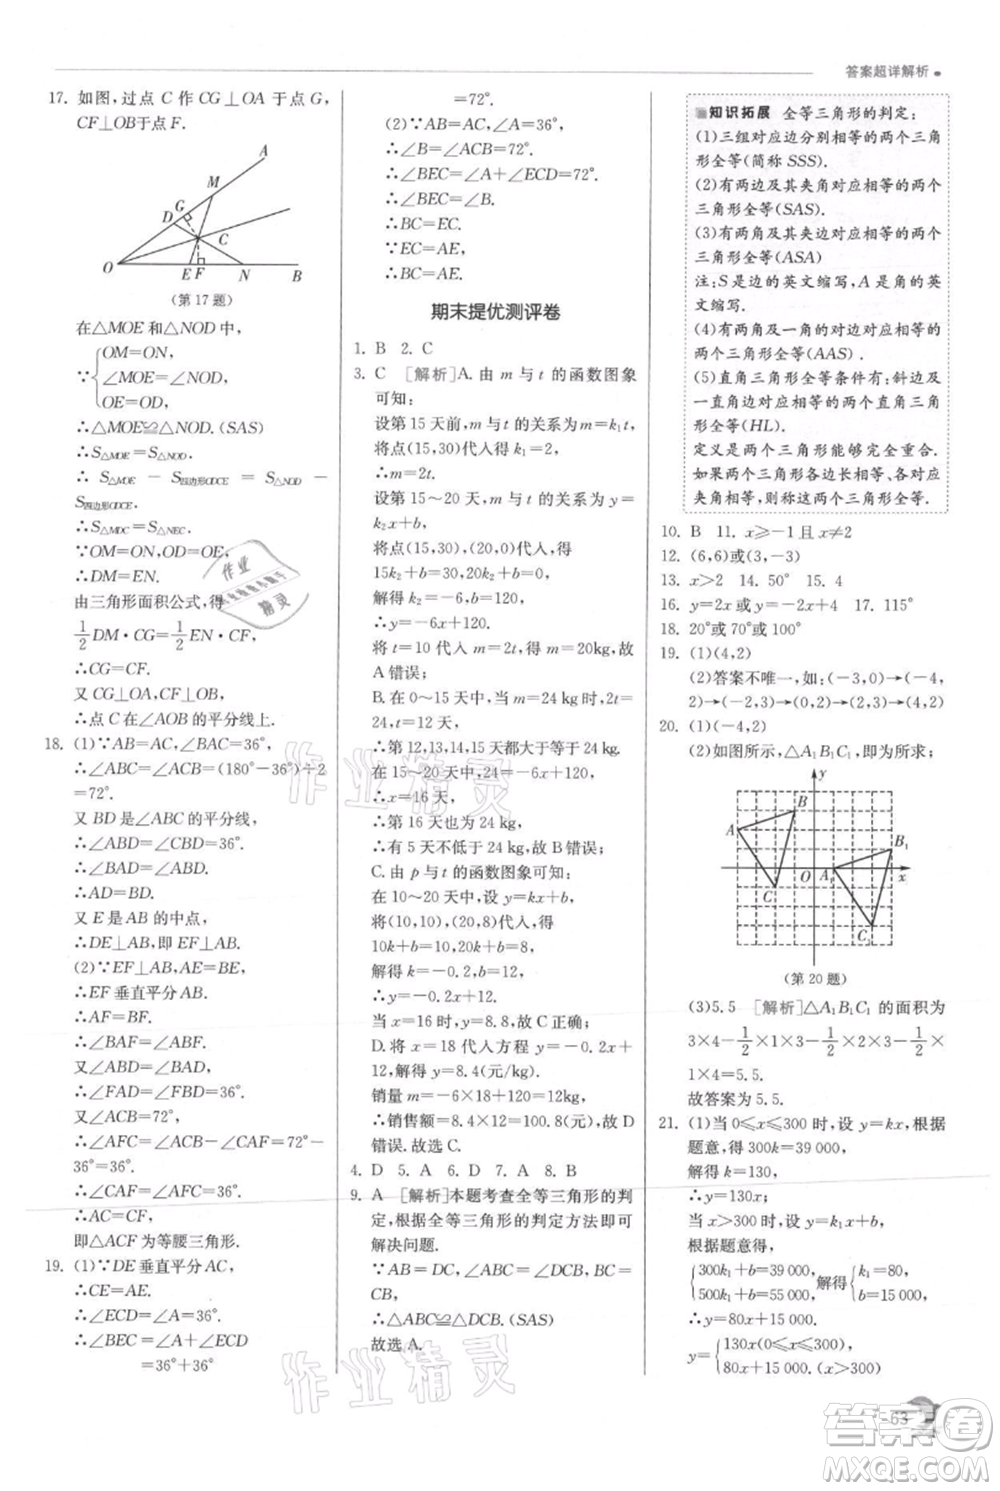 答案超详解析
17. 如图,过点 C 作 CG⊥OA 于点 G,
CF⊥OB于点 F.
A
M
G
D
C
O
E F N B
(第 17 题)
在△MOE 和△NOD 中,
OM=ON,
∵ ∠MOE=∠NOD,
OE=OD,
∴△MOE≌△NOD. (SAS)
∴S△MOE=S△NOD.
∴ S△MOE − S四边形ODCE = S△NOD −
S四边形ODCE.
∴S△MDC=S△NEC.
∵OM=ON,OD=OE,
∴DM=EN.
由三角形面积公式,得
1/2 DM·CG=1/2 EN·CF,
∴CG=CF.
又 CG⊥OA,CF⊥OB,
∴点 C 在∠AOB 的平分线上.
18. (1)∵AB=AC,∠BAC=36°,
∴∠ABC=∠ACB=(180°-36°)÷2
=72°.
又 BD 是∠ABC 的平分线,
∴∠ABD=∠CBD=36°.
∴∠BAD=∠ABD.
∴AD=BD.
又 E 是 AB 的中点,
∴DE⊥AB,即 EF⊥AB.
(2)∵EF⊥AB,AE=BE,
∴EF 垂直平分 AB.
∴AF=BF.
∴∠BAF=∠ABF.
∴∠FAD=∠FBD=36°.
又∠ACB=72°,
∴∠AFC=∠ACB-∠CAF=72°-
36°=36°.
∴∠CAF=∠AFC=36°.
∴AC=CF.
即△ACF 为等腰三角形.
19. (1)∵DE 垂直平分 AC,
∴CE=AE.
∴∠ECD=∠A=36°.
∴∠BEC=∠A+∠ECD
=36°+36°
=72°.
(2)∵AB=AC,∠A=36°,
∴∠B=∠ACB=72°.
∴∠BEC=∠A+∠ECD=72°.
∴∠BEC=∠B.
∴BC=EC.
∵EC=AE,
∴BC=AE.
期末提优测评卷
1. B 2. C
3. C [解析]A. 由 m 与 t 的函数图象
可知:
设第 15 天前,m 与 t 的关系为 m=k₁t,
将点(15,30)代入得 k₁=2,
∴m=2t.
设第 15～20 天,m 与 t 的关系为 y=
k₂x+b,
将点(15,30),(20,0)代入,得
15k₂+b=30,20k₂+b=0.
解得 k₂=-6,b=120,
∴y=-6x+120.
将 t=10 代入 m=2t,得 m=20,故
A 错误;
B. 在 0～15 天,当 m=24 kg 时,24=2t,
∴t=12,
∴第 12,13,14,15 天都大于等于 24 kg.
在 15～20 天中,24=-6x+120,
∴x=16 天,
∴第 16 天也为 24 kg.
∴有 5 天不低于 24 kg,故 B 错误;
C. 由 p 与 t 的函数图象可知:
在 10～20 天中,设 y=kx+b,
将(10,10),(20,8)代入,得
10k+b=10,20k+b=8.
解得 k=-0.2,b=12,
∴y=-0.2x+12.
当 x=16 时,y=8.8,故 C 正确;
D. 将 x=18 代入方程 y=-0.2x+
12,解得 y=8.4(元/kg).
销量 m=-6×18+120=12,
∴销售额=8.4×12=100.8(元),故 D
错误. 故选 C.
4. D 5. A 6. D 7. A 8. B
9. A [解析]本题考查全等三角形的判
定,根据全等三角形的判定方法即可
解决问题.
∵AB=DC,∠ABC=∠DCB,BC=
CB,
∴△ABC≌△DCB. (SAS)
故选 A.
知识拓展 全等三角形的判定:
(1)三组对应边分别相等的两个三角
形全等(简称 SSS).
(2)有两边及其夹角对应相等的两个
三角形全等(SAS).
(3)有两角及其夹边对应相等的两个
三角形全等(ASA)
注:S 是边的英文缩写,A 是角的英
文缩写.
(4)有两角及一角的对边对应相等的
两个三角形全等(AAS).
(5)直角三角形全等条件有:斜边及
一直角边对应相等的两个直角三角
形全等(HL).
定义是两个三角形能够完全重合.
如果两个三角形各边长相等、各对应
夹角相等,则称这两个三角形全等.
10. B 11. x≥-1 且 x≠2
12. (6,6)或(3,-3)
13. x>2 14. 50° 15. 4
16. y=2x 或 y=-2x+4 17. 115°
18. 20°或 70°或 100°
19. (1)(4,2)
(2)答案不唯一,如:(-3,0)→(-4,
2)→(-2,3)→(0,2)→(2,3)→(4,2)
20. (1)(-4,2)
(2)如图所示,△A₁B₁C₁,即为所求;
y
B
A
B₁
O A₁ x
C
C₁
(第 20 题)
(3)5.5 [解析]△A₁B₁C₁ 的面积为
3×4-1/2×2×3-1/2×1×4-1/2×
1×3=5.5.
故答案为 5.5.
21. (1)当 0≤x≤300 时,设 y=kx,根据
题意,得 300k=39 000,
解得 k=130,
∴y=130x;
当 x>300 时,设 y=k₁x+b,
根据题意得,
300k₁+b=39 000, 解得 k₁=80,
500k₁+b=55 000, b=15 000,
∴y=80x+15 000.
y= 130x(0≤x≤300)
80x+15 000. (x>300)
63
作业精灵
作业精灵
作业精灵
答案圈
MXQE.COM